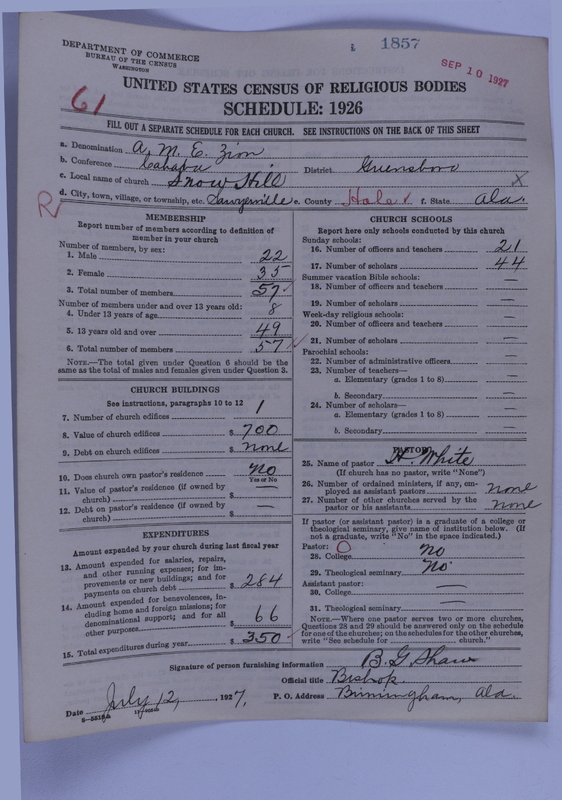 1857
DEPARTMENT OF COMMERCE
BUREAU OF THE CENSUS
WASHINGTON
SEP 10 1927
61
UNITED STATES CENSUS OF RELIGIOUS BODIES
SCHEDULE: 1926
FILL OUT A SEPARATE SCHEDULE FOR EACH CHURCH. SEE INSTRUCTIONS ON THE BACK OF THIS SHEET
a. Denomination A. M. E. Zion
b. Conference Cahaba District Greensboro
c. Local name of church Snow Hill X
R d. City, town, village, or township, etc. Sawyerville e. County Hale f. State Ala.
MEMBERSHIP
Report number of members according to definition of
member in your church
Number of members, by sex:
1. Male 22
2. Female 35
3. Total number of members 57
Number of members under and over 13 years old:
4. Under 13 years of age 8
5. 13 years old and over 49
6. Total number of members 57
NOTE.—The total given under Question 6 should be the
same as the total of males and females given under Question 3.
CHURCH BUILDINGS
See instructions, paragraphs 10 to 12
7. Number of church edifices 1
8. Value of church edifices $ 700
9. Debt on church edifices $ none
10. Does church own pastor's residence No
Yes or No
11. Value of pastor's residence (if owned by
church) $ —
12. Debt on pastor's residence (if owned by
church) $ —
EXPENDITURES
Amount expended by your church during last fiscal year
13. Amount expended for salaries, repairs,
and other running expenses; for im-
provements or new buildings; and for
payments on church debt $ 284
14. Amount expended for benevolences, in-
cluding home and foreign missions; for
denominational support; and for all
other purposes $ 66
15. Total expenditures during year $ 350
CHURCH SCHOOLS
Report here only schools conducted by this church
Sunday schools:
16. Number of officers and teachers 21
17. Number of scholars 44
Summer vacation Bible schools:
18. Number of officers and teachers —
19. Number of scholars —
Week-day religious schools:
20. Number of officers and teachers —
21. Number of scholars —
Parochial schools:
22. Number of administrative officers —
23. Number of teachers—
a. Elementary (grades 1 to 8) —
b. Secondary —
24. Number of scholars—
a. Elementary (grades 1 to 8) —
b. Secondary —
PASTOR
25. Name of pastor H. White
(If church has no pastor, write "None")
26. Number of ordained ministers, if any, em-
ployed as assistant pastors none
27. Number of other churches served by the
pastor or his assistants none
If pastor (or assistant pastor) is a graduate of a college or
theological seminary, give name of institution below. (If
not a graduate, write "No" in the space indicated.)
Pastor: O
28. College no
29. Theological seminary No
Assistant pastor:
30. College —
31. Theological seminary —
NOTE.—Where one pastor serves two or more churches,
Questions 28 and 29 should be answered only on the schedule
for one of the churches; on the schedules for the other churches,
write "See schedule for church."
Signature of person furnishing information B. G. Shaw
Official title Bishop
Date July 12, 1927. P. O. Address Birmingham, Ala.